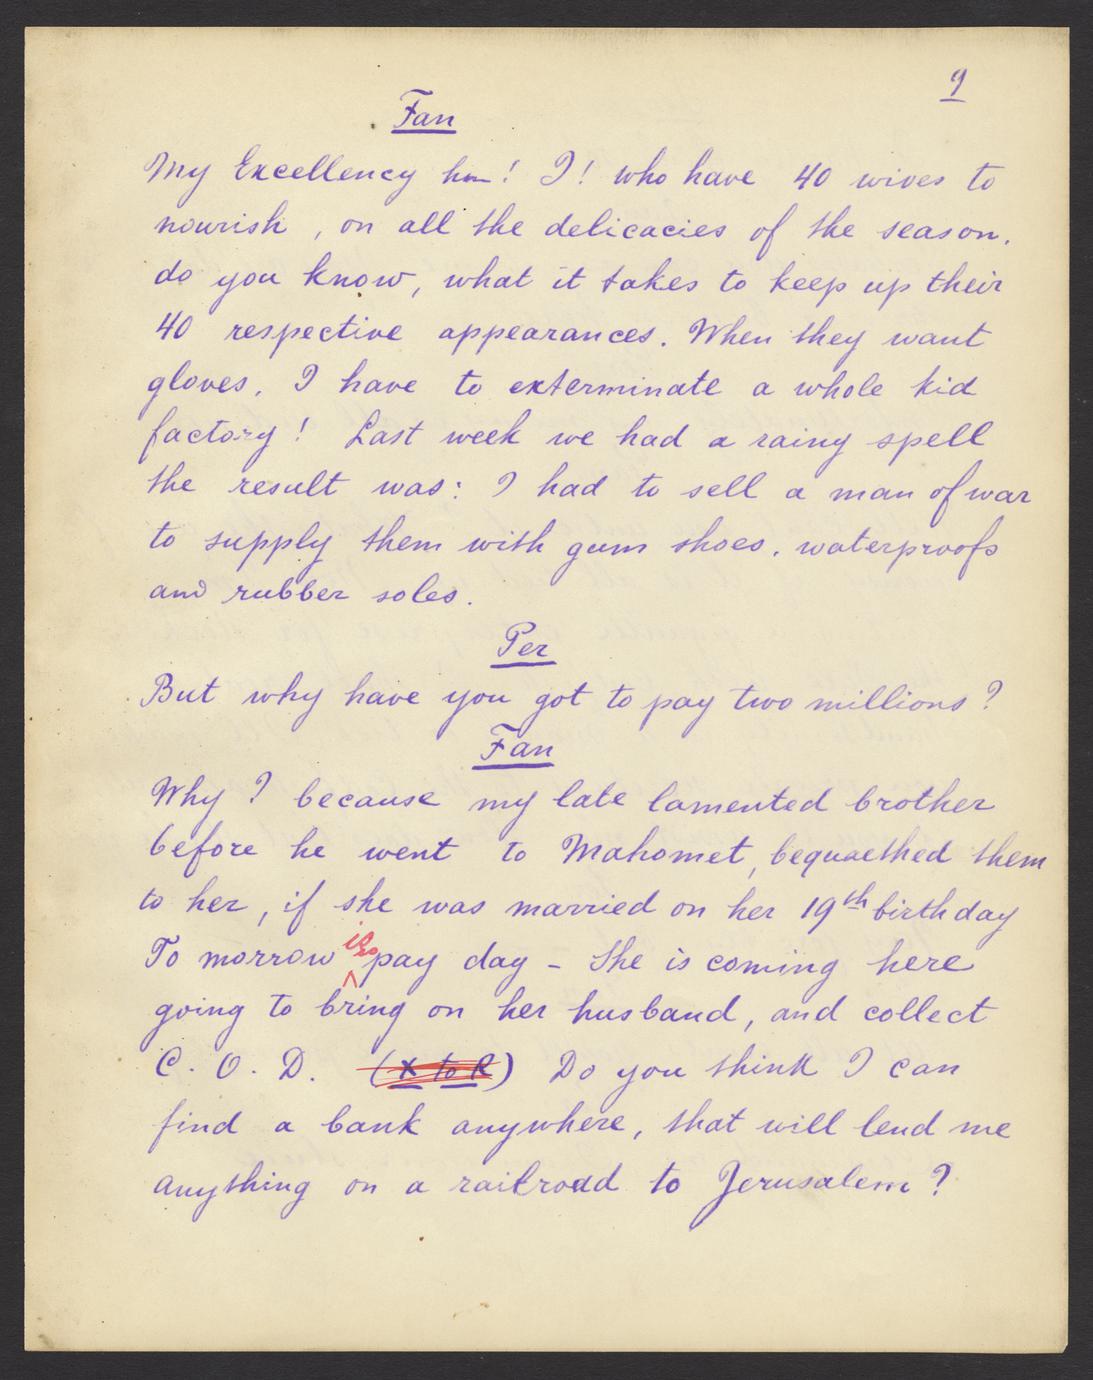 9
Fan
My Excellency hm! I! who have 40 wives to
nourish, on all the delicacies of the season.
do you know, what it takes to keep up their
40 respective appearances. When they want
gloves, I have to exterminate a whole kid
factory! Last week we had a rainy spell
the result was: I had to sell a man of war
to supply them with gum shoes, waterproofs
and rubber soles.
Per
But why have you got to pay two millions?
Fan
Why? because my late lamented brother
before he went to Mahomet, bequaethed them
to her, if she was married on her 19th birthday
To morrow is pay day - She is coming here
going to bring on her husband, and collect
C. O. D. (X to R) Do you think I can
find a bank anywhere, that will lend me
anything on a railroad to Jerusalem?